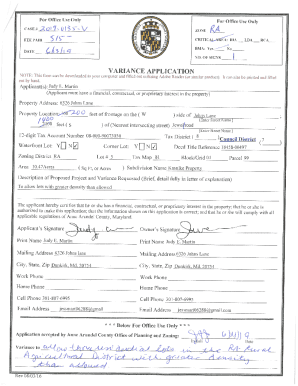 For Office Use Only
CASE # 2019-0135-V
FEE PAID 515-
DATE 6/3/19
For Office Use Only
ZONE RA
CRITICAL AREA: IDA LDA RCA
BMA: Yes No
NO. OF SIGNS
VARIANCE APPLICATION
NOTE: This form can be downloaded to your computer and filled out utilizing Adobe Reader (or similar product). It can also be printed and filled out by hand.
Applicant(s) Judy L. Martin
(Applicant must have a financial, contractual, or proprietary interest in the property)
Property Address: 6326 Johns Lane
Property Location: 200 feet of frontage on the (W) side of Johns Lane
(Enter Street Name)
feet ( S ) of (Nearest intersecting street) Jewell road
(Enter Street Name)
12-digit Tax Account Number Tax District 8 Council District 7
Waterfront Lot: Y N Corner Lot: Y N Deed Title Reference
Zoning District RA Lot # Tax Map Block/Grid Parcel 99
Area (Sq Ft or Acres) Subdivision Name
Description of Proposed Project and Variance Requested (Brief, detail fully in letter of explanation)
To allow lots with greater density than allowed.
The applicant hereby certifies that he or she has a financial, contractual, or proprietary interest in the property; that he or she is
authorized to make this application; that the information shown on this application is correct; and that he or she will comply with
all applicable regulations of Anne Arundel County, Maryland.
Applicant's Signature Owner's Signature
Print Name Judy L. Martin Print Name Judy L. Martin
Mailing Address 6326 Johns Lane Mailing Address 6326 Johns Lane
City, State, Zip Dunkirk, Md. 20754 City, State, Zip Dunkirk, Md. 20754
Work Phone Work Phone
Home Phone Home Phone
Cell Phone 301-807-6995 Cell Phone 301-807-6995
Email Address Email Address
* * * Below For Office Use Only * * *
Application accepted by Anne Arundel County Office of Planning and Zoning:
Variance to allow lots in the RA Rural
Agricultural District with greater density
than allowed